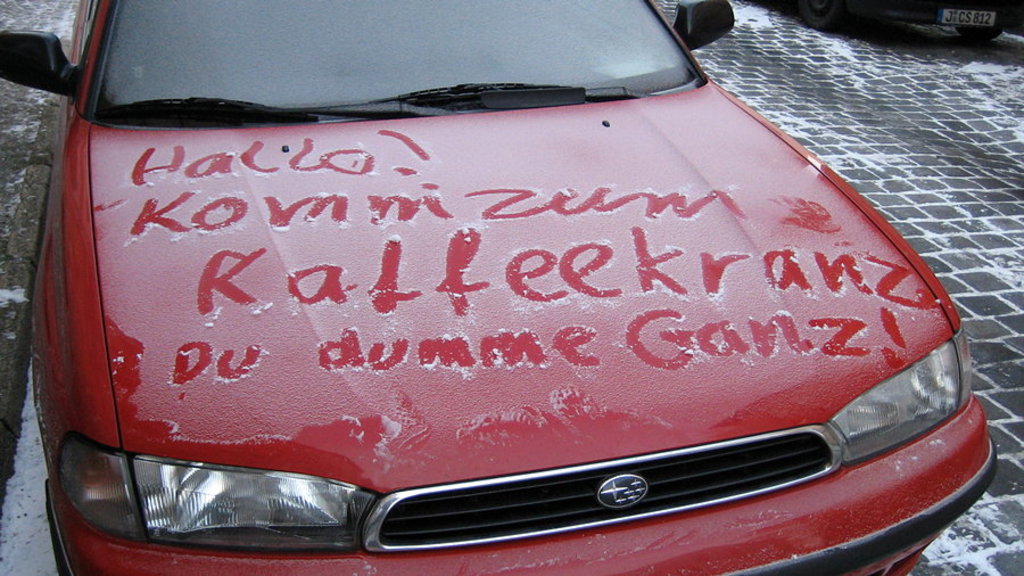 J CS 812
Hallo!
Komm zum
Kaffeekranz
Du dumme Ganz!